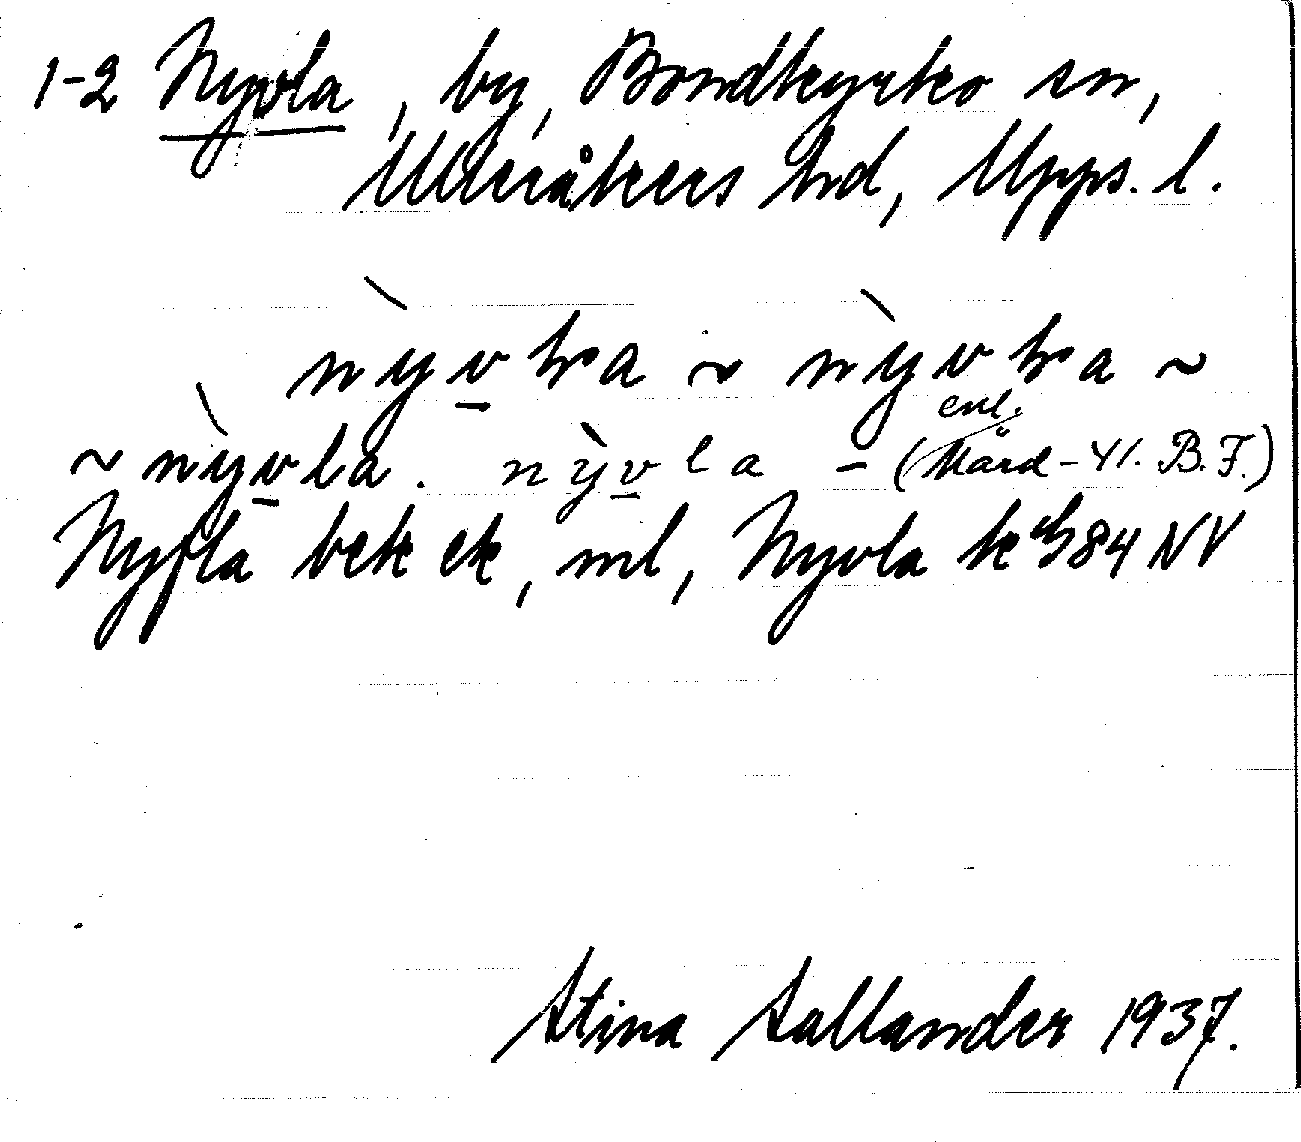 1-2 Nyvla, by, Bondkyrko sn,
Ulleråkers hd, Upps. l.
~ nỳvla. nỳvla - (enl. Mård -41. B.F.)
Nyfla bek ek, ml, Nyvla k 84 NV
Stina Sallander 1937.